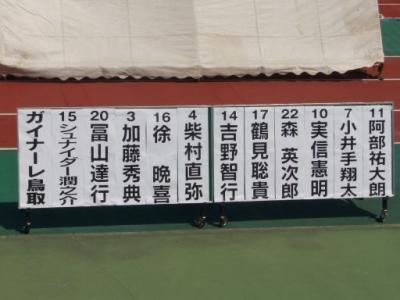 11 阿部祐大朗
7 小井手翔太
10 実信憲明
22 森 英次郎
17 鶴見聡貴
14 吉野智行
4 柴村直弥
16 徐 暁喜
3 加藤秀典
20 冨山達行
15 シュナイダー潤之介
ガイナーレ鳥取